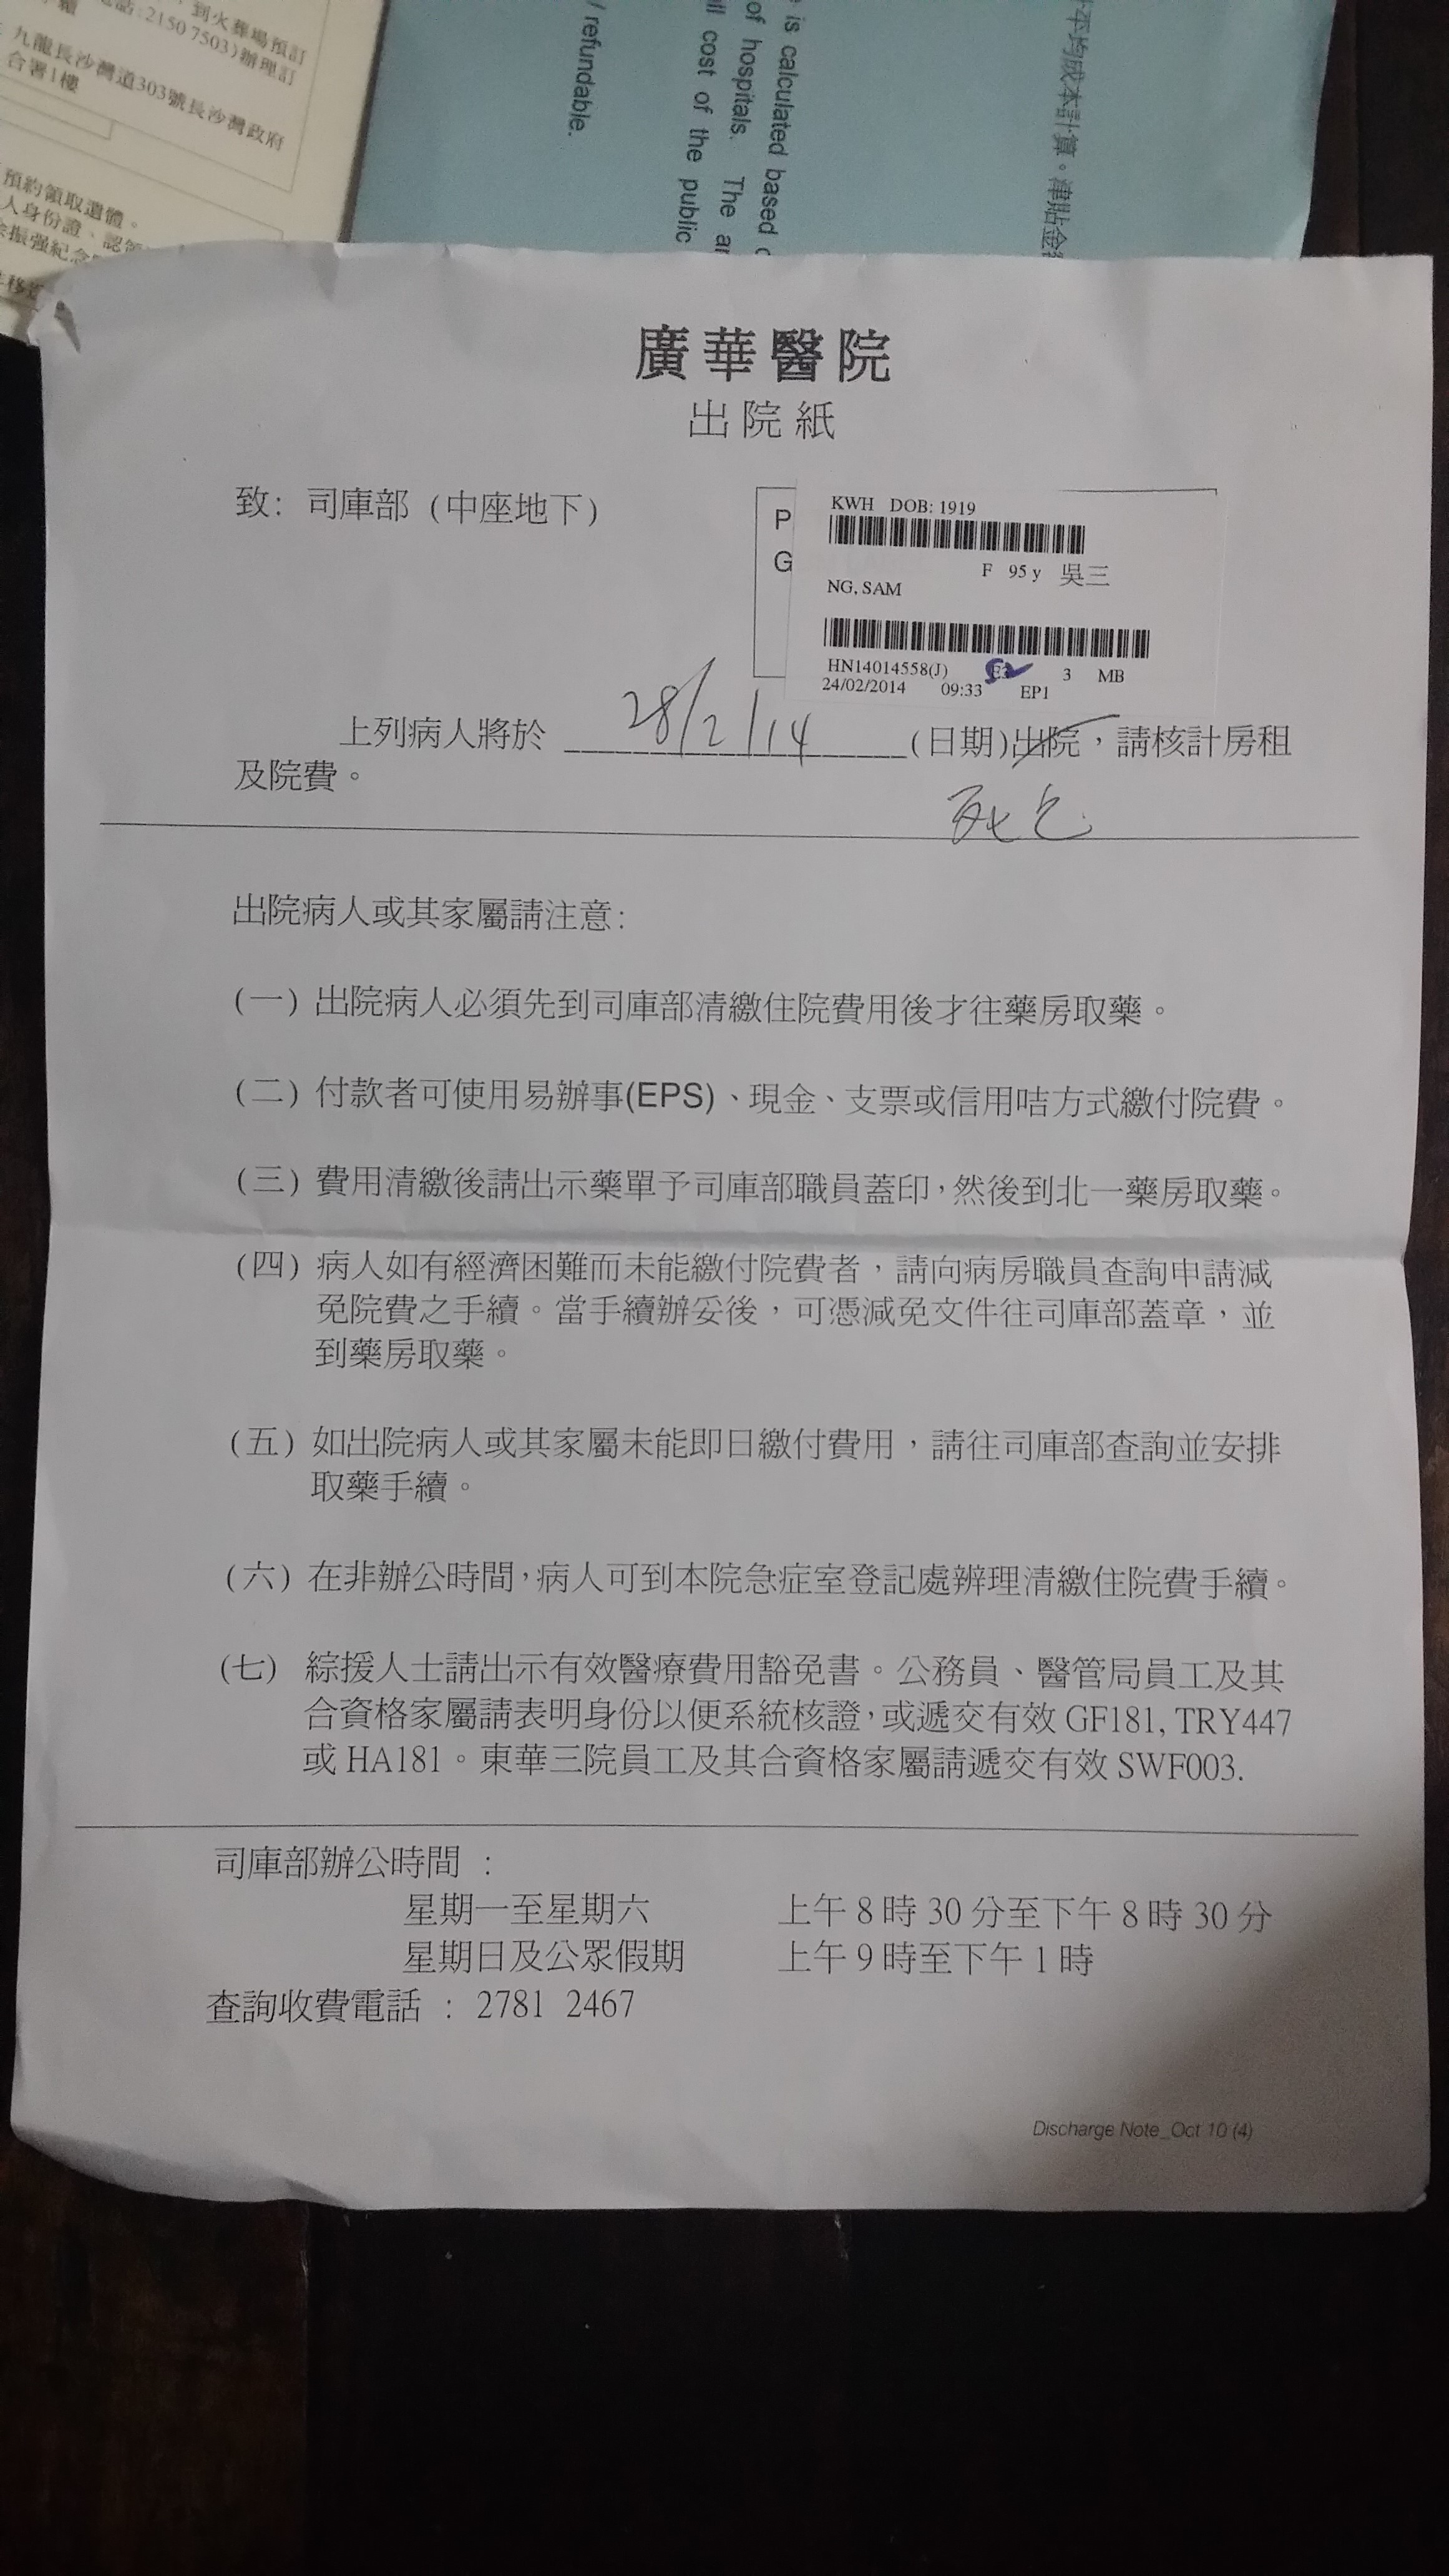 到火葬場預訂
電話:2150 7503)辦理訂
九龍長沙灣道303號長沙灣政府
合署1樓
預約領取遺體。
人身份證、認領
振强紀念
is calculated based
of hospitals. The
cost of the public
/ refundable.
平均成本計算。津貼金
廣華醫院
出院紙
致: 司庫部 (中座地下)
P
G
KWH DOB: 1919
F 95 y 吳三
NG, SAM
HN14014558(J) 3 MB
24/02/2014 09:33 EP1
上列病人將於 28/2/14 (日期)出院,請核計房租
及院費。
死亡
出院病人或其家屬請注意:
(一) 出院病人必須先到司庫部清繳住院費用後才往藥房取藥。
(二) 付款者可使用易辦事(EPS)、現金、支票或信用咭方式繳付院費。
(三) 費用清繳後請出示藥單予司庫部職員蓋印,然後到北一藥房取藥。
(四) 病人如有經濟困難而未能繳付院費者,請向病房職員查詢申請減
免院費之手續。當手續辦妥後,可憑減免文件往司庫部蓋章,並
到藥房取藥。
(五) 如出院病人或其家屬未能即日繳付費用,請往司庫部查詢並安排
取藥手續。
(六) 在非辦公時間,病人可到本院急症室登記處辦理清繳住院費手續。
(七) 綜援人士請出示有效醫療費用豁免書。公務員、醫管局員工及其
合資格家屬請表明身份以便系統核證,或遞交有效 GF181, TRY447
或 HA181。東華三院員工及其合資格家屬請遞交有效 SWF003.
司庫部辦公時間 :
星期一至星期六 上午 8 時 30 分至下午 8 時 30 分
星期日及公眾假期 上午 9 時至下午 1 時
查詢收費電話 : 2781 2467
Discharge Note_Oct 10 (4)